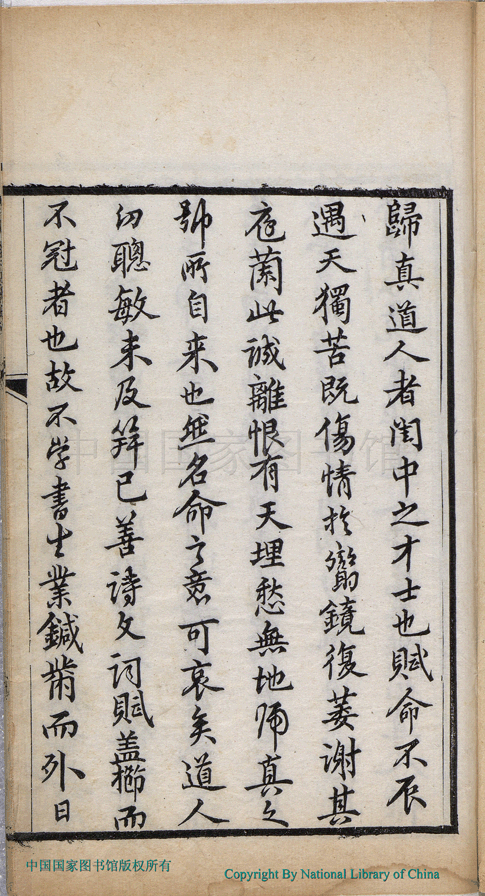 歸真道人者閨中之才士也賦命不辰
遇天獨苦既傷情於鸞鏡復萎謝其
庭蘭此誠離恨有天埋愁無地歸真之
號所自来也然名命之意可哀矣道人
幼聰敏未及笄已善詩文詞賦盖櫛而
不冠者也故不学書生業鍼黹而外日
中国国家图书馆
中国国家图书馆版权所有
Copyright By National Library of China